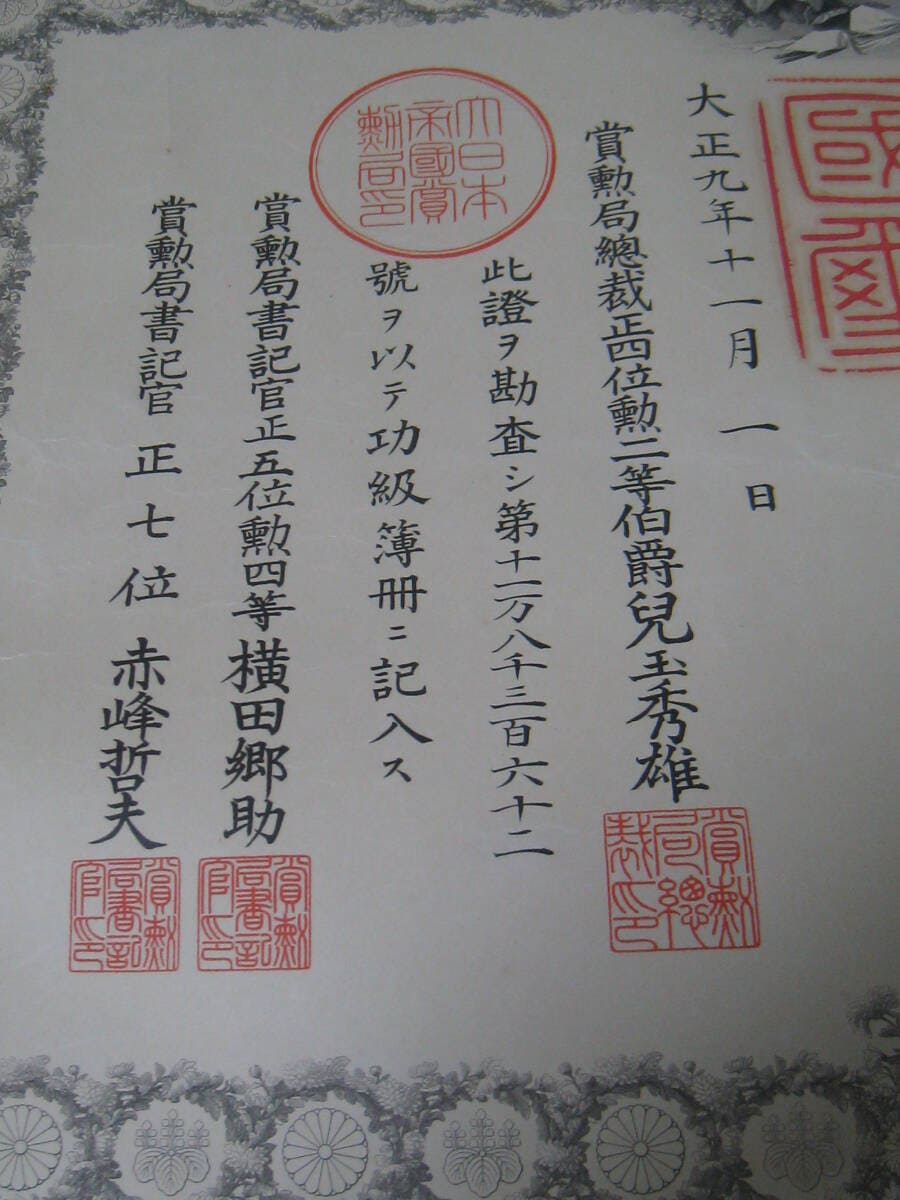 大正九年十一月一日
賞勲局總裁正四位勲二等伯爵兒玉秀雄
賞勲局總裁印
大日本帝國賞勲局印
此證ヲ勘査シ第十一万八千三百六十二
號ヲ以テ功級簿冊ニ記入ス
賞勲局書記官正五位勲四等横田郷助
賞勲局書記官印
賞勲局書記官正七位赤峰哲夫
賞勲局書記官印